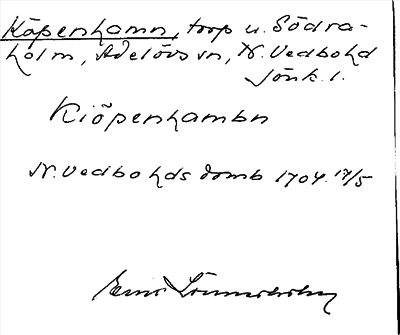 Köpenhamn, torp u. Södra-
holm, Adelövs sn, N. Vedbo hd
Jönk. l.
Kiöpenhambn
N. Vedbo hds domb 1704. 17/5